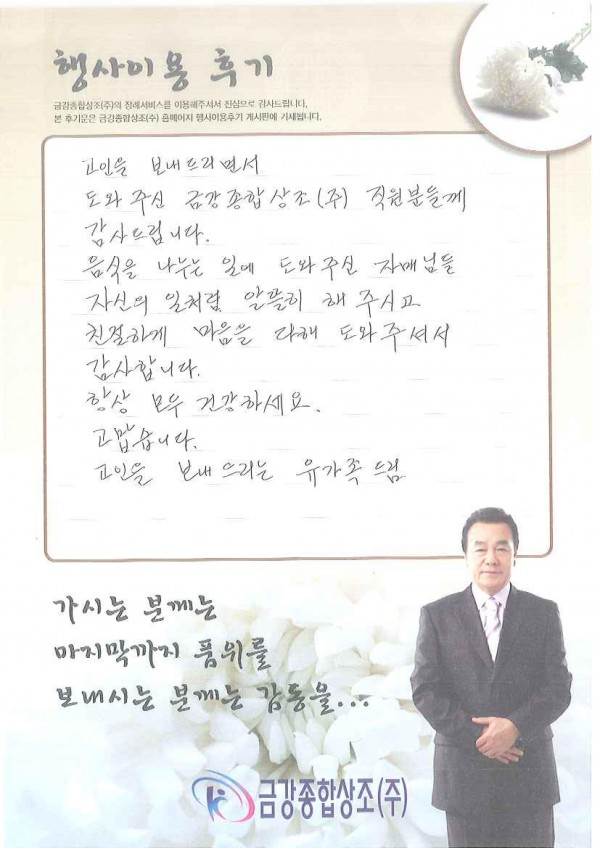 행사이용 후기
금강종합상조(주)의 장례서비스를 이용해주셔서 진심으로 감사드립니다.
본 후기문은 금강종합상조(주) 홈페이지 행사이용후기 게시판에 기재됩니다.
고인을 보내드리면서
도와주신 금강종합상조(주) 직원분들께
감사드립니다.
음식을 나누는 일에 도와주신 자매님들
자신의 일처럼 알뜰히 해 주시고
친절하게 마음을 다해 도와주셔서
감사합니다.
항상 모두 건강하세요.
고맙습니다.
고인을 보내드리는 유가족 드림
가시는 분께는
마지막까지 품위를
보내시는 분께는 감동을...
금강종합상조(주)